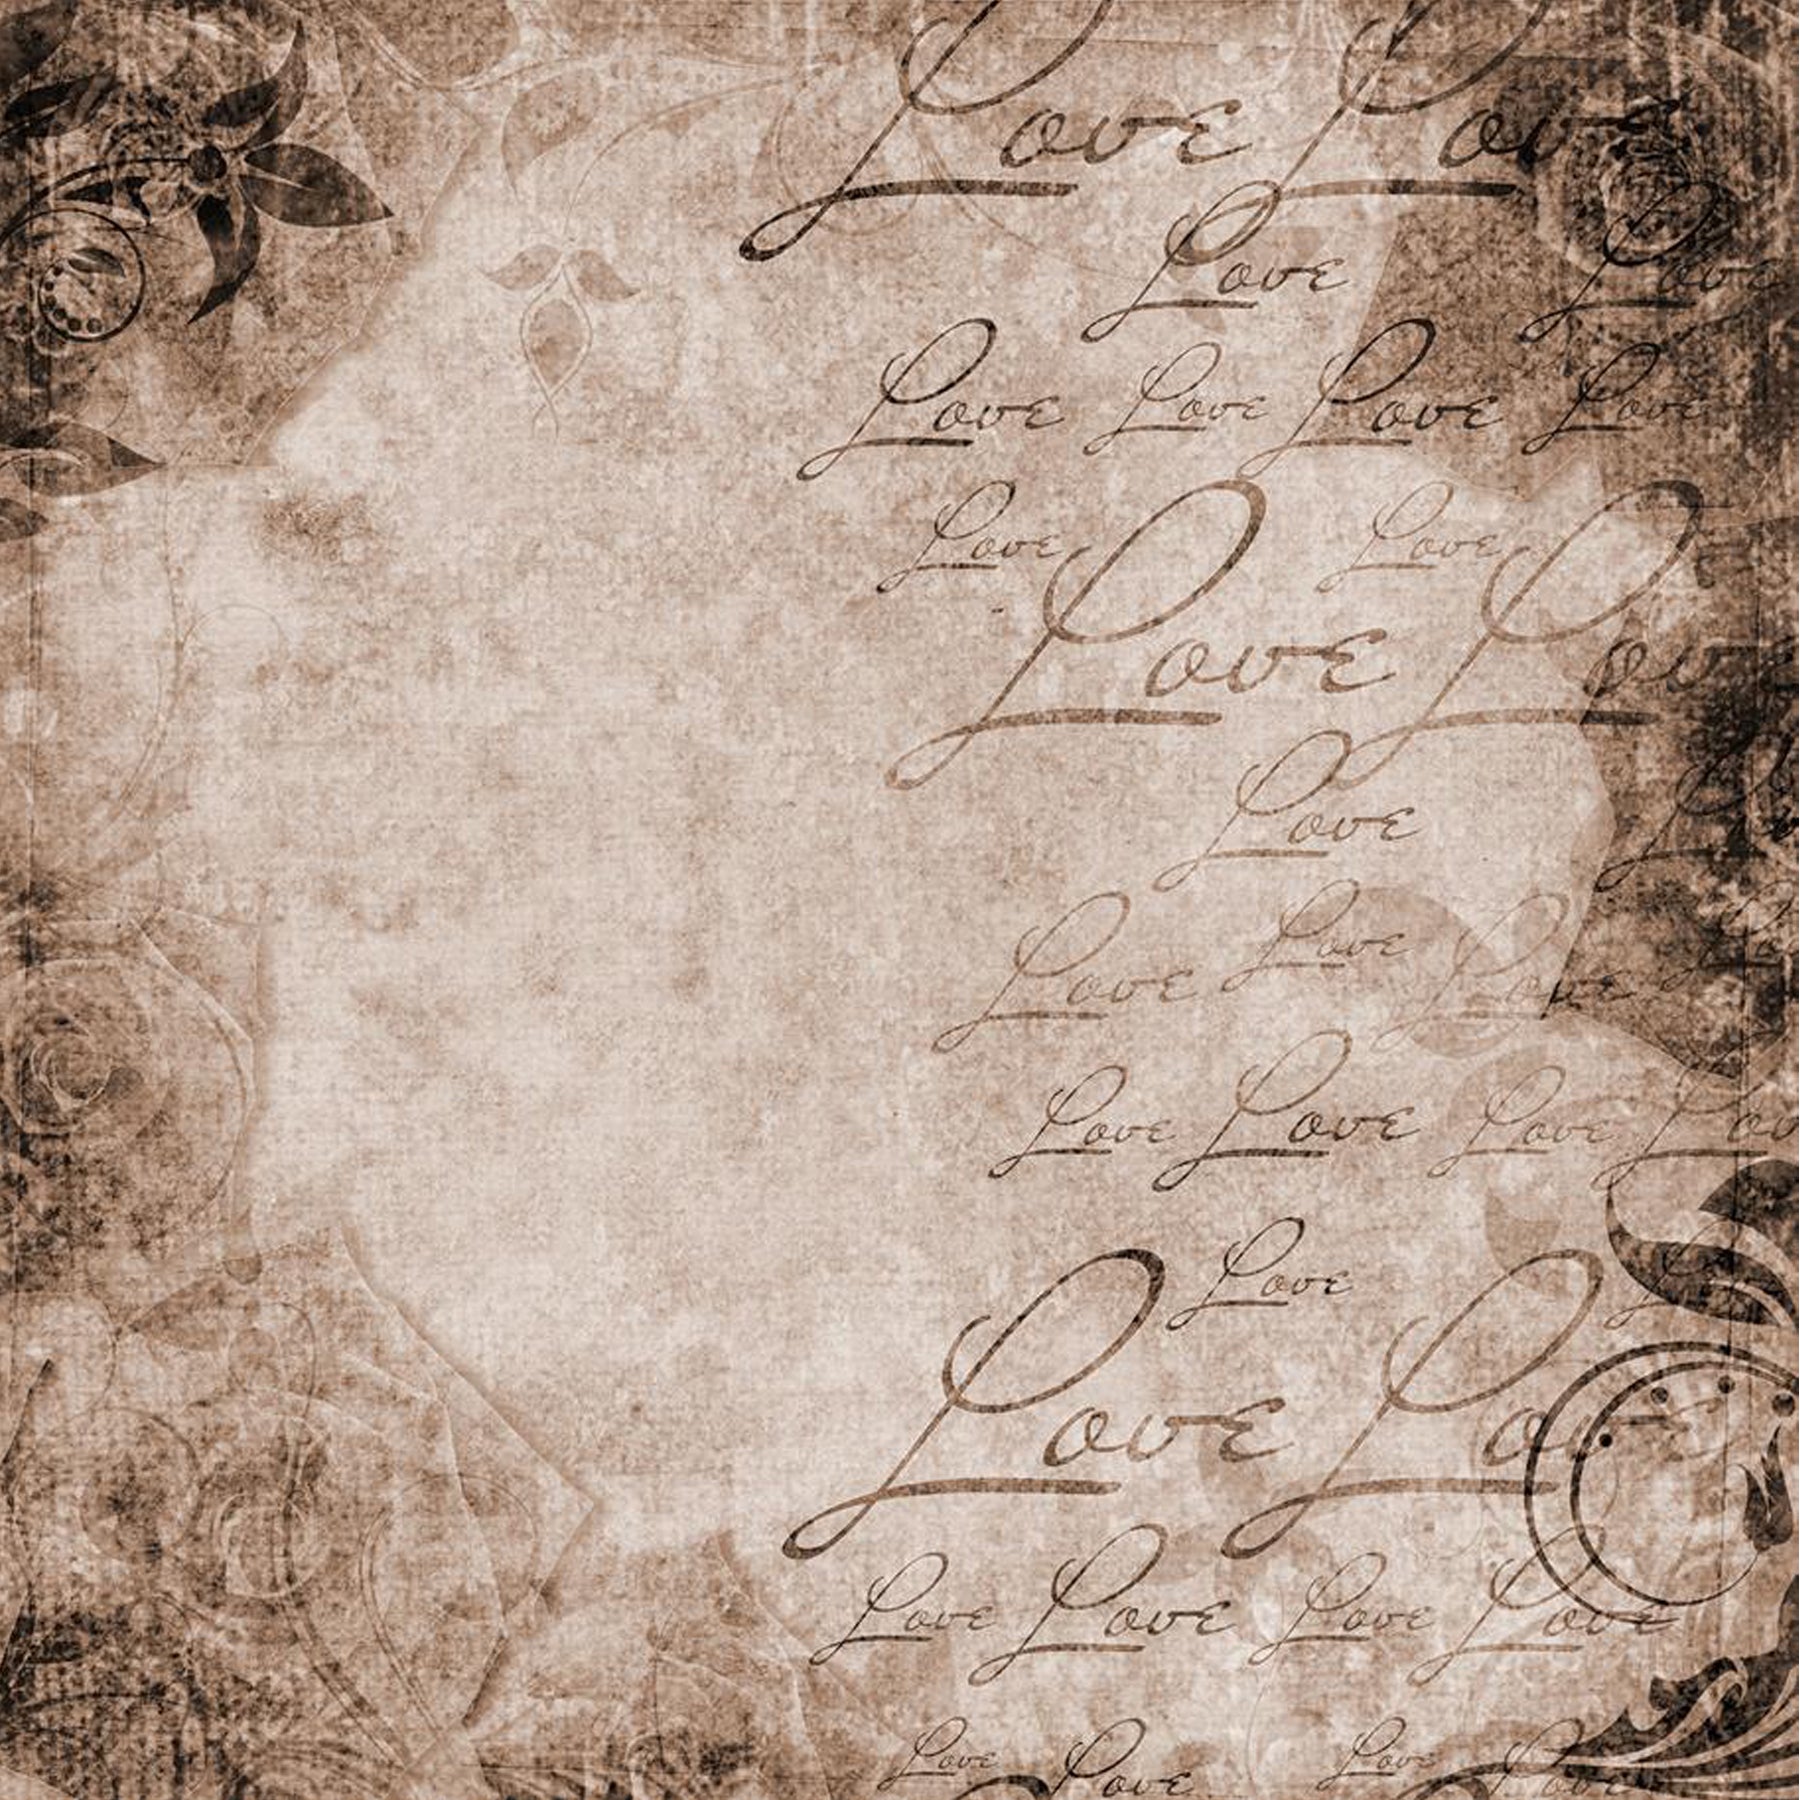 Love Love
Love Love
Love Love Love Love
Love Love
Love Love
Love
Love Love Love
Love Love Love Lov
Love
Love Lo
Love Love Love Love
Love Love
Love Love